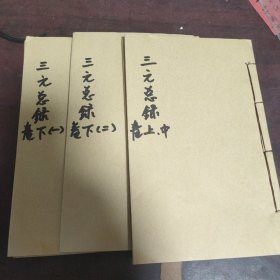 三元总録
卷下(一)
三元总録
卷下(二)
三元总録
卷上.中